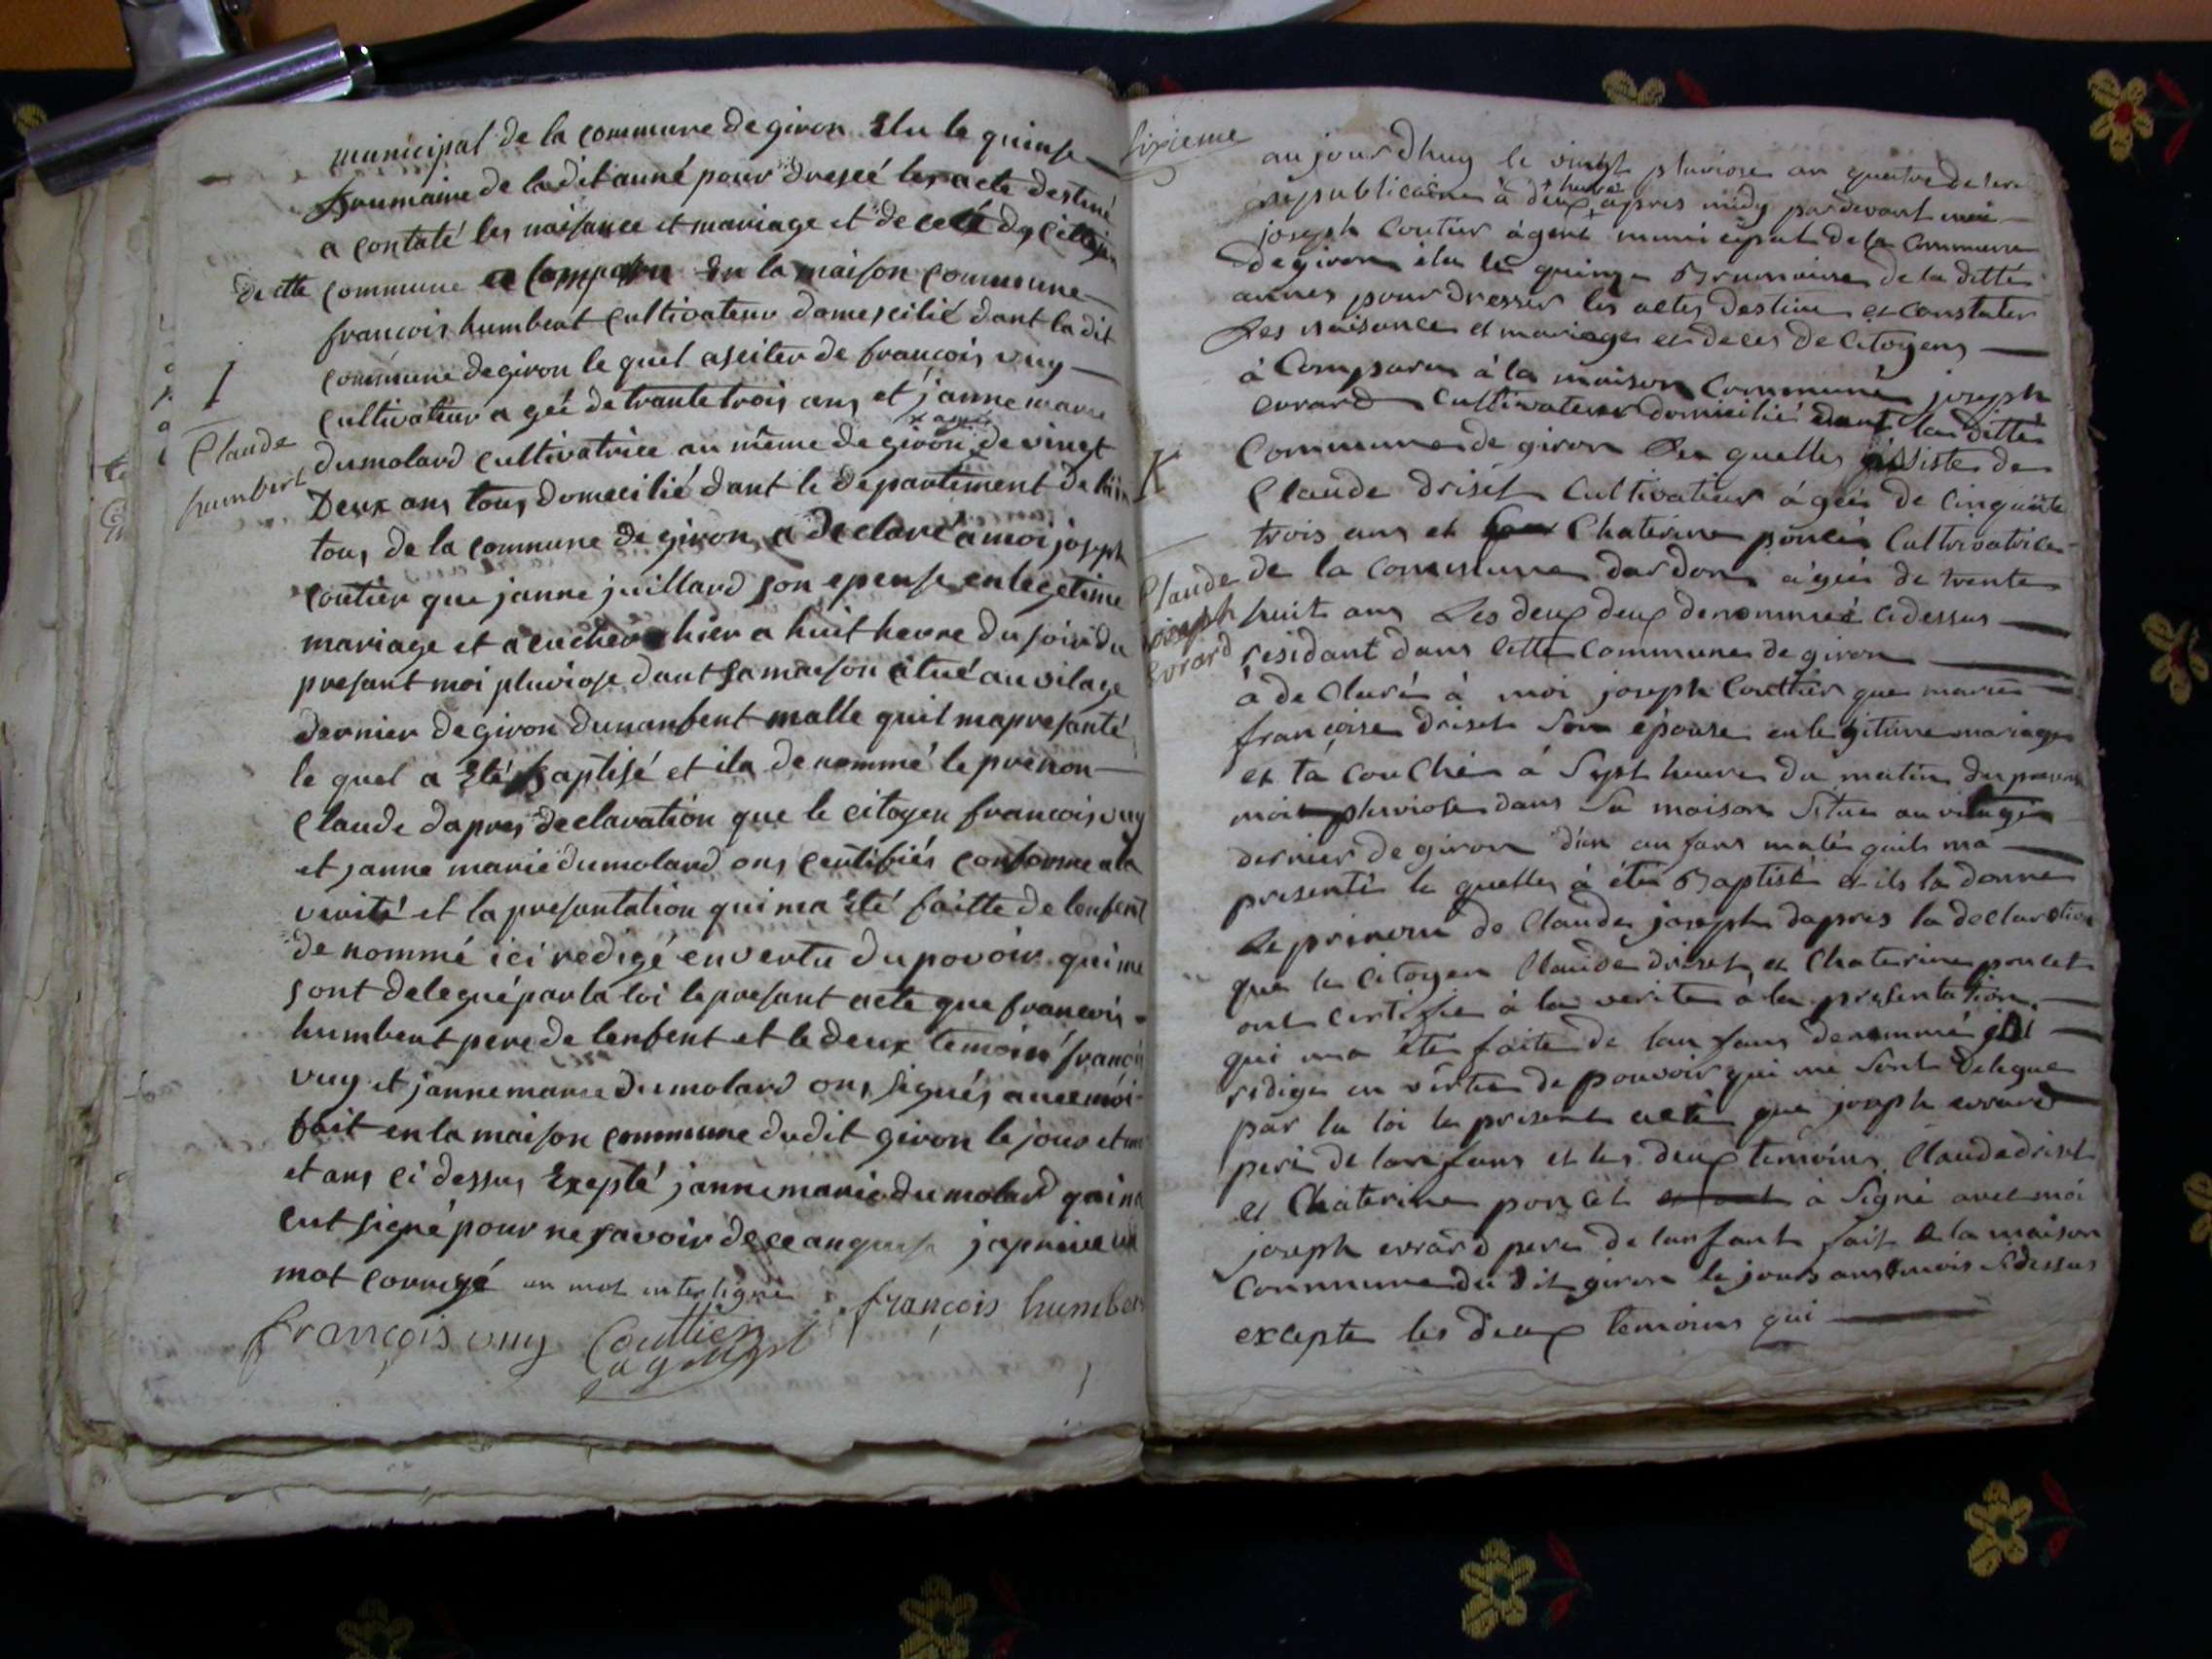 municipal de la commune de giron Elu le quinse
brumaire de la dit anné pour dreseé les acte destiné
a contaté les naisance et mariage et de cece dy citojen
de cette commune a comparu en la maison commune
francois humbert cultivateur domescilié dant la dit
commune de giron le quel asciter de francois vuy
cultivateur a geé de trante trois ans et janne marie
x ageé
dumolard cultivatrice au même de giron de vinct
Deux ans tous domecilié dant le departement de lain
tous de la commune de giron a declaré a moi joseph
coutier que janne juillard son epouse en legetime
mariage et acucher hier a huit heure du soir du
presant moi pluviose dant sa maison citué au vilage
dernier de giron dunanfent malle quil mapresanté
le quel a Eté baptisé et ila de nommé le prénon
Claude dapres declaration que le citoyen francois vuy
et janne marie dumolard ons certifiés conforme ala
verité et la presantation qui ma Eté faitte de lenfent
de nommé ici redigé en vertu du povoir qui me
sont delegué par la loi le presant acte que francois
humbert pere de lenfent et le deux temoin francois
vuy et janne marie dumolard ons signés avec moi
fait en la maison commune dudit giron le jour et moi
et ans ci dessus Exepté janne marie dumolard qui na
cut signé pour ne savoir de ce anquise japrive un
mot corrigé un mot interligné
françois humber
françois vuy Couttier
agent
I
Claude
humbert
sixieme
aujourdhuy le vingt pluviose an quatre de lere
heure
republicaine à deux apres midy pardevant moi
joseph Coutier àgent municipal de la Commune
de giron élu le quinze Brumaire de la ditte
annes pour dresser les actes destine et constater
Les naisance et mariage et deces de Citoyens
à Comparu à la maison Commune joseph
evrard Cultivateur domicilié dant la ditte
Commune de giron Les quelles assiste de
Claude driset Cultivateur àgeé de cinquante
trois ans et Chaterine poncés Cultrivatrice
de la commune dardon àgeé de trente
huit ans Les deux deux denommée cidessus
residant dans cette commune de giron
à de Claré à moi joseph Couttier que marie
françoise driset son épouse en legitime mariage
et ta couChé à Sept heure du matin du present
mois pluviose dans sa maison situe au vilage
dernier de giron dun anfans male quils ma
presenté le quelles à éte Baptisé et ils la donne
Le prenom de Claude joseph dapres la declaration
que le Citoyen Claude driset et Chaterine poncet
ont certifie à la verite à la presentation
qui ma éte faite de lanfans denommé ici
redige en vertu de pouvoir qui me sont delegue
par la loi le present acte que joseph evrard
pere de lanfans et les deux temoins Claude driset
et Chaterine poncet à signé avec moi
joseph evrard pere de lanfant fait a la maison
Commune du dit giron le jours ans mois sidessus
excepte les deux temoins qui
K
Claude
joseph
Evrard